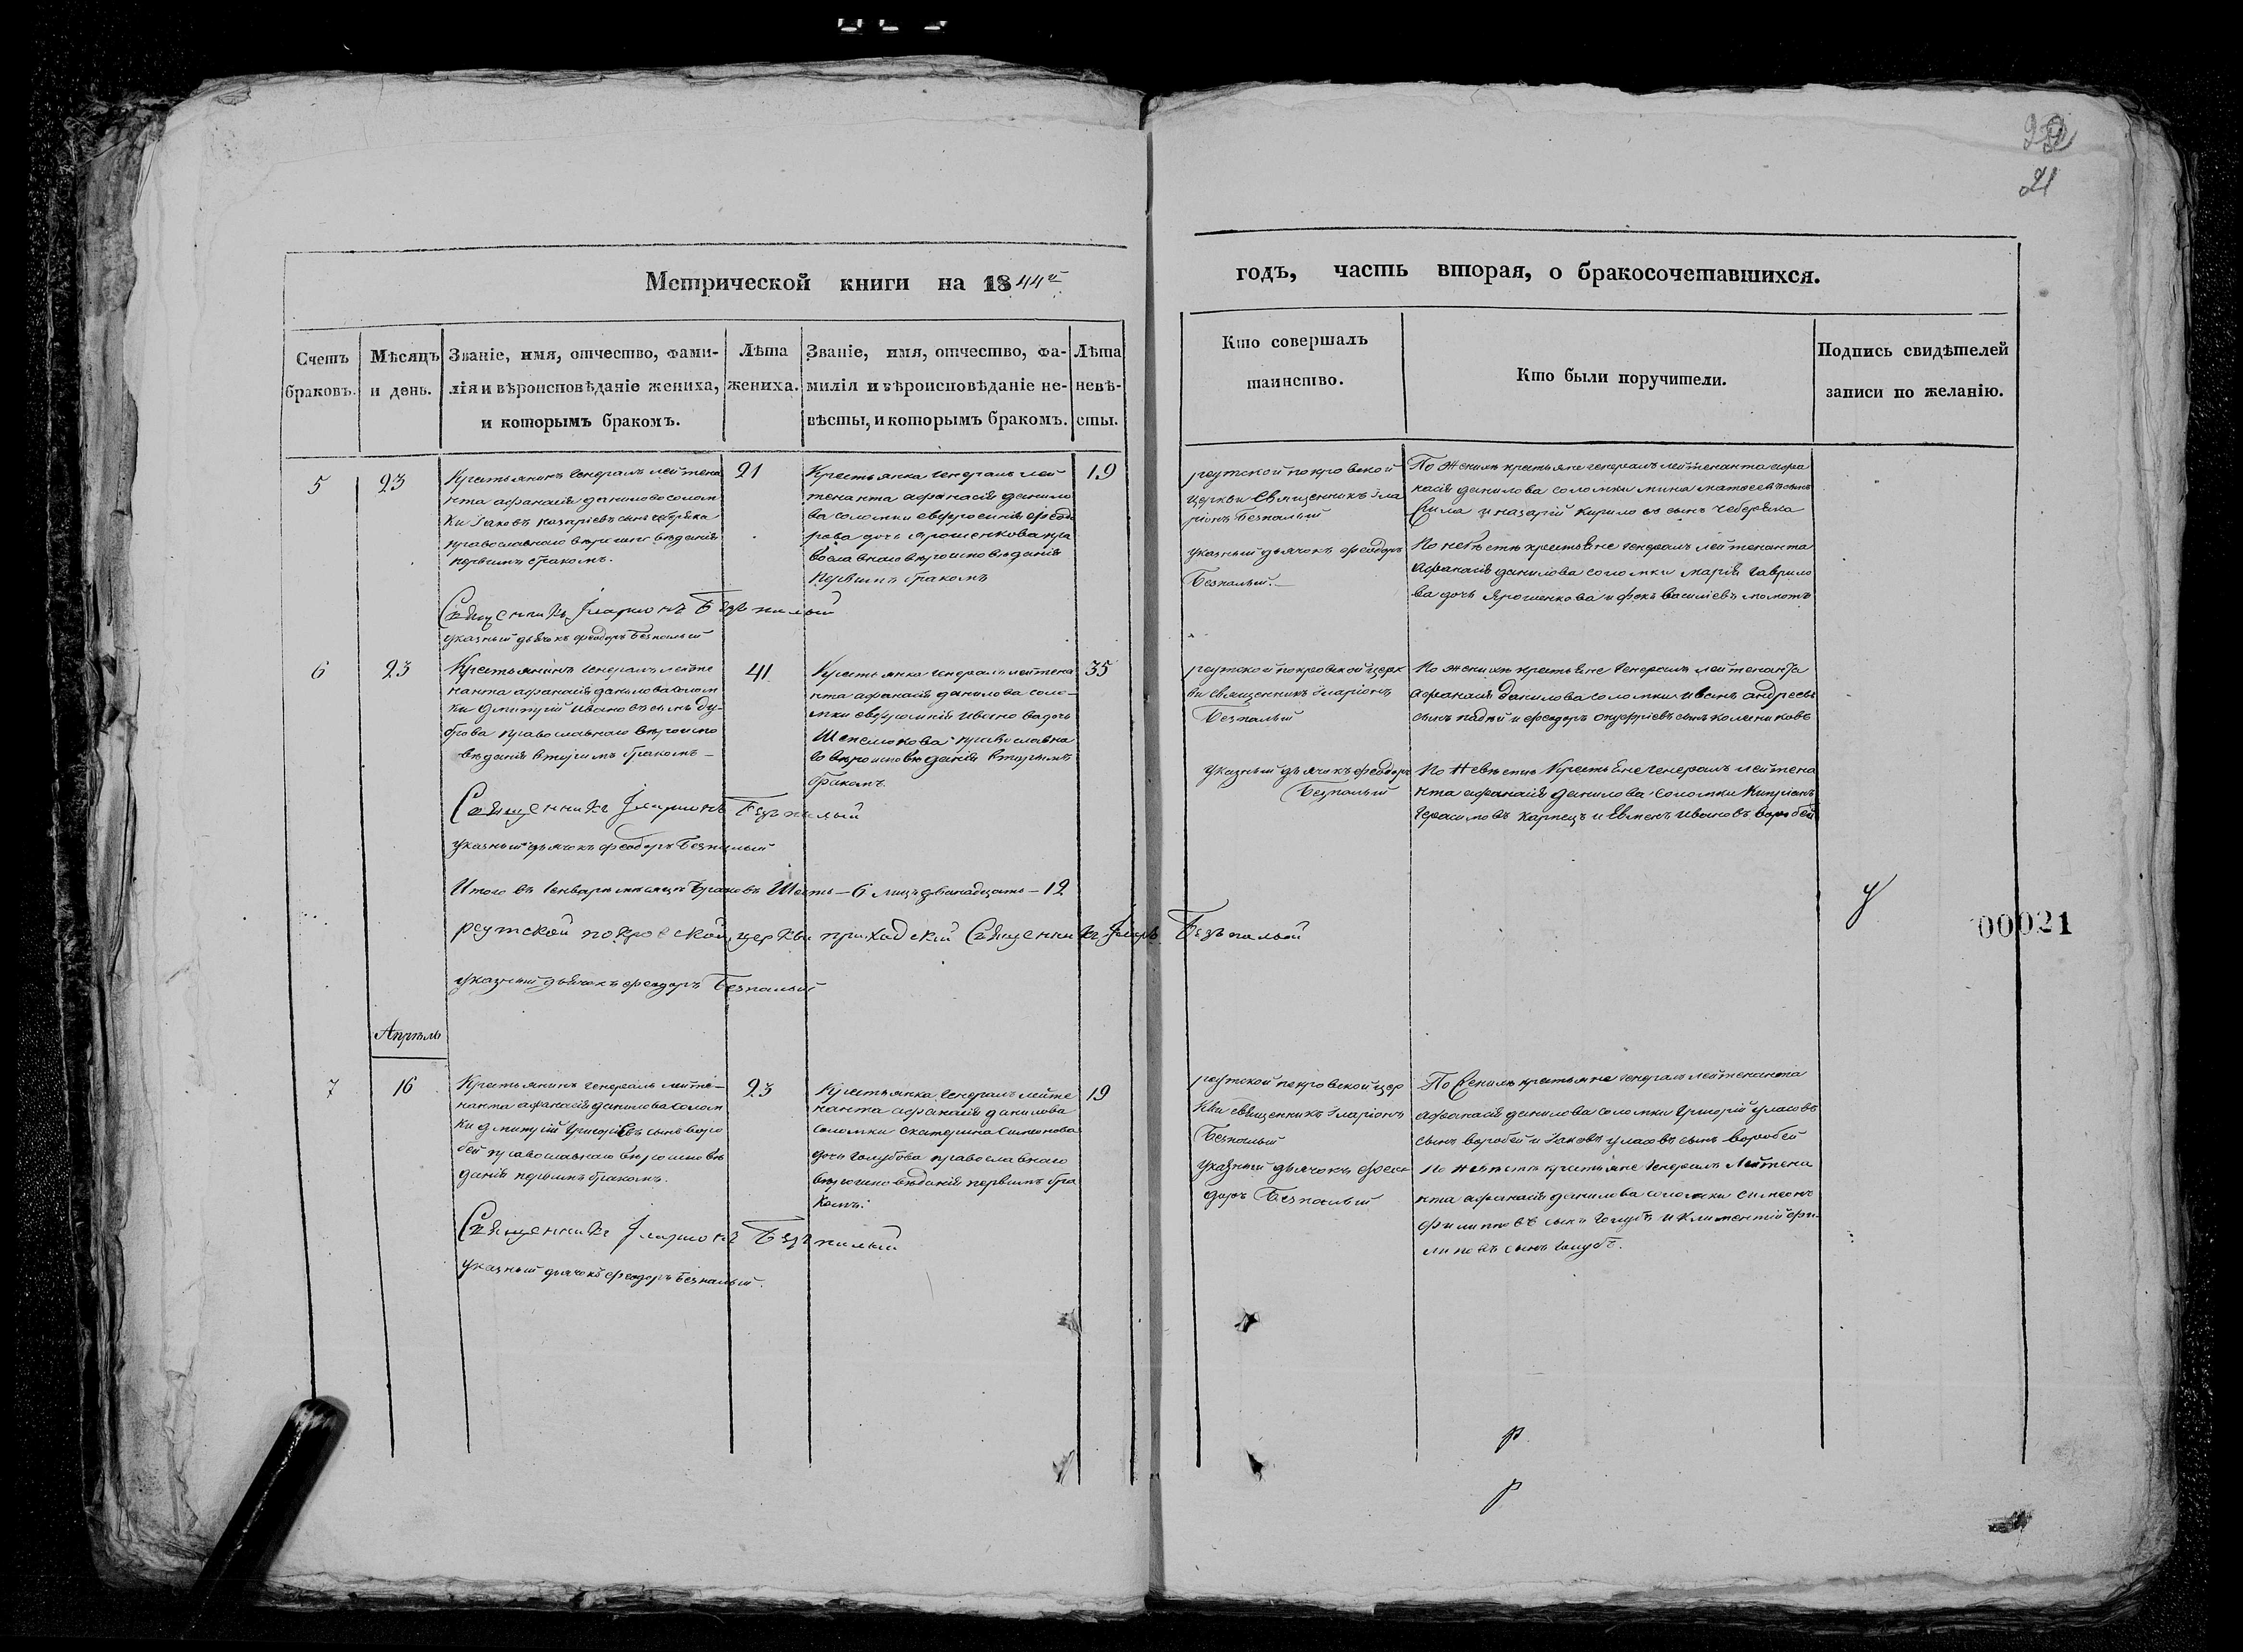 22
21
Метрической книги на 1844й
годъ, часть вторая, о бракосочетавшихся.
Счетъ браковъ.
Мѣсяцъ и день.
Званіе, имя, отчество, фами-
лія и вѣроисповѣданіе жениха,
и которымъ бракомъ.
Лѣта
жениха.
Званіе, имя, отчество, фа-
милія и вѣроисповѣданіе не-
вѣсты, и которымъ бракомъ.
Лѣта
невѣ-
сты.
Кто совершалъ
таинство.
Кто были поручители.
Подпись свидѣтелей
записи по желанію.
5
23
Крестьянинъ генералъ лейтена
нта афанасія данилова солом
ки Іаковъ сынъ чебряка
православнаго вѣроисповѣданія
первымъ бракомъ.
21
Крестьянка генералъ лей
тенанта афанасія данило
ва соломки евфросинія феодо
рова дочь ярошенкова пра
вославнаго вѣроисповѣданія
первымъ бракомъ
19
реутской покровской
церкви Священникъ Іла
ріонъ Безпалый
указный дьячокъ феодоръ
Безпалый.
По женихѣ крестьяне генералъ лейтенанта афа
насія данилова соломки мина матвеевъ сынъ
Сила и назарій кирило въ сынъ чеберяка
По невѣстѣ крестьяне генералъ лейтенанта
Афанасія данилова соломки марія гаврило
ва дочь Ярошенкова и фока василіевъ момотъ
Священникъ Іларіонъ Безпалый
указный дьячокъ феодоръ Безпалый
6
23
Крестьянинъ генералъ лейте
нанта афанасія данилова солом
ки дмитрій ивановъ сынъ ду-
брова православнаго вѣроиспо
вѣданія вторимъ бракомъ
41
Крестьянка генералъ лейтена
нта афанасія данилова соло-
мки евфросинія иванова дочь
православна
го вѣроисповѣданія вторымъ
бракомъ
35
реутской покровской церк
ви священникъ Іларіонъ
Безпалый
указный дьячокъ феодоръ
Безпалый
По женихѣ крестьяне генералъ лейтенанта
Афанасія данилова соломки иванъ андреевъ
сынъ и феодоръ онуфріевъ сынъ колениковъ
По невѣстѣ Крестьяне генералъ лейтена
нта афанасія данилова соломки Кипріянъ
герасимовъ карпецъ и Евменъ ивановъ воробей
Священникъ Іларіонъ Безпалый
указный дьячокъ феодоръ Безпалый
Итого въ генварѣ месяцѣ браковъ Шесть — 6 лицъ двенадцать — 12
реутской покровской церкви приходскій Священникъ Іларіо Безпалый
указный дьячокъ феодоръ Безпалый
00021
Апрѣль
7
16
Крестьянинъ генералъ лейте-
нанта афанасія данилова солом
ки дмитрій григоріевъ сынъ воро
бей православнаго вѣроисповѣ
данія первымъ бракомъ.
23
Крестьянка генералъ лейте
нанта афанасія данилова
соломки екатерина симеонова
дочь голубова православнаго
вѣроисповѣданія первымъ бра
комъ.
19
реутской покровской цер
кви священникъ Іларіонъ
Безпалый
указный дьячокъ фео
доръ Безпалый
По женихѣ крестьяне генералъ лейтенанта
афанасія данилова соломки григорій уласовъ
сынъ воробей и Іаковъ уласовъ сынъ воробей
По невѣстѣ крестьяне генералъ Лейтена
нта афанасія данилова соломки симеонъ
филиповъ сынъ голубъ и климентій фи-
липовъ сынъ голубъ.
Священникъ Іларіонъ Безпалый
указный дьячокъ феодоръ Безпалый.